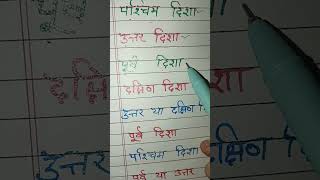 पश्चिम दिशा-
उत्तर दिशा-
पूर्व दिशा
दक्षिण दिशा
उत्तर या दक्षिण
पूर्व दिशा
पश्चिम दिशा
पूर्व या उत्तर